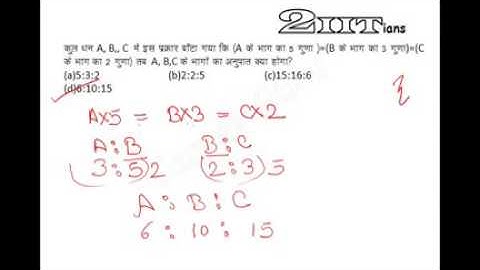 2IITians
कुल धन A, B,, C में इस प्रकार बाँटा गया कि (A के भाग का 5 गुणा )=(B के भाग का 3 गुणा)=(C
के भाग का 2 गुणा) तब A, B,C के भागों का अनुपात क्या होगा?
(a)5:3:2 (b)2:2:5 (c)15:16:6
(d)6:10:15
A×5 = B×3 = C×2
A:B B:C
(3:5)2 (2:3)5
A : B : C
6 : 10 : 15